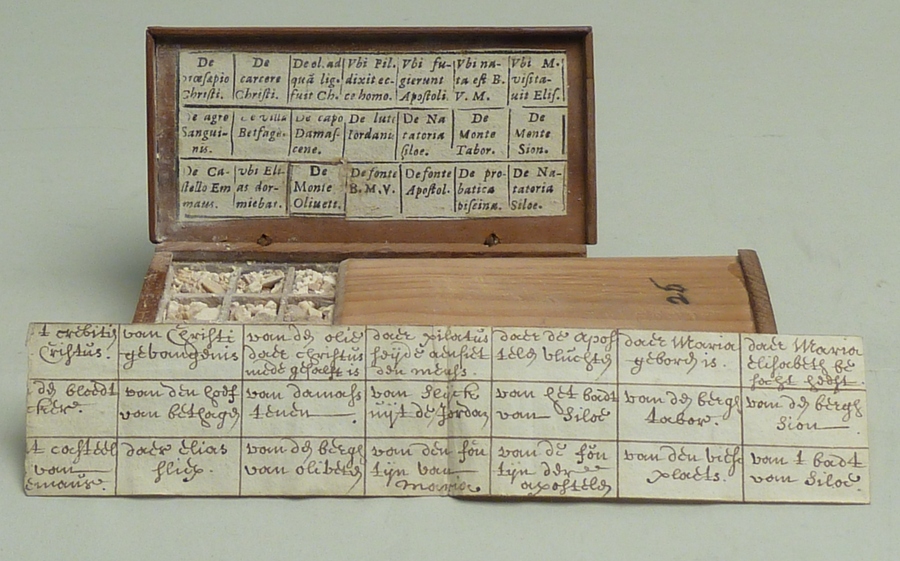 De
præsapio
Christi.
De
carcere
Christi.
De ol. ad
quā lig.
fuit Ch.
Vbi Pil.
dixit ec-
ce homo.
Vbi fu-
gierunt
Apostoli.
Vbi na-
ta est B.
V. M.
Vbi M.
visita-
uit Elis.
De agro
Sangui-
nis.
De villa
Betfage.
De capo
Damas-
cene.
De luti
Iordanis
De Na
tatoria
siloe.
De
Monte
Tabor.
De
Monte
Sion.
De Ca-
stello Em
maus.
vbi Eli-
as dor-
miebat.
De
Monte
Oliuett.
De fonte
B. M. V.
De fonte
Apostol.
De pro-
batica
piscina.
De Na-
tatoria
Siloe.
26
t crebitig
Cristus.
van Christi
gevangenis
van dē olie
daer christus
mede gesalft is
daer pilatus
seijde aensiet
den mens.
daer de apos
telen vluchtē
daer Maria
geborē is.
daer Maria
elisabeth be
socht heeft
dē bloedt
cker.
van den hoef
van bethagē
van damass
tenen
van slijck
uijt de Jordaen
van het badt
van siloe
van den bergh
tabor.
van dē bergh
sion
t casteel
van
emaus.
daer elias
sliep.
van dē bergh
van olivetē
van den fon
tijn van
Maria
van de fon
tijn der
apostelē
van den visch
plaets.
van t badt
van siloe.